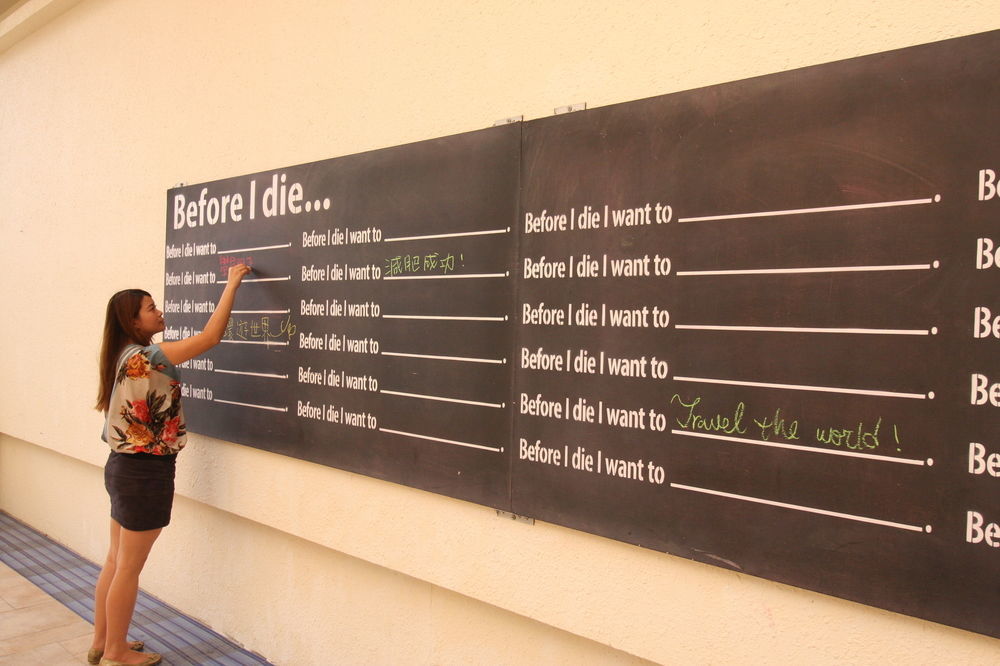 Before I die...
Before I die I want to
Before I die I want to
Before I die I want to
Before I die I want to 環遊世界
I die I want to
die I want to
Before I die I want to
Before I die I want to 減肥成功!
Before I die I want to
Before I die I want to
Before I die I want to
Before I die I want to
Before I die I want to
Before I die I want to
Before I die I want to
Before I die I want to
Before I die I want to Travel the world!
Before I die I want to